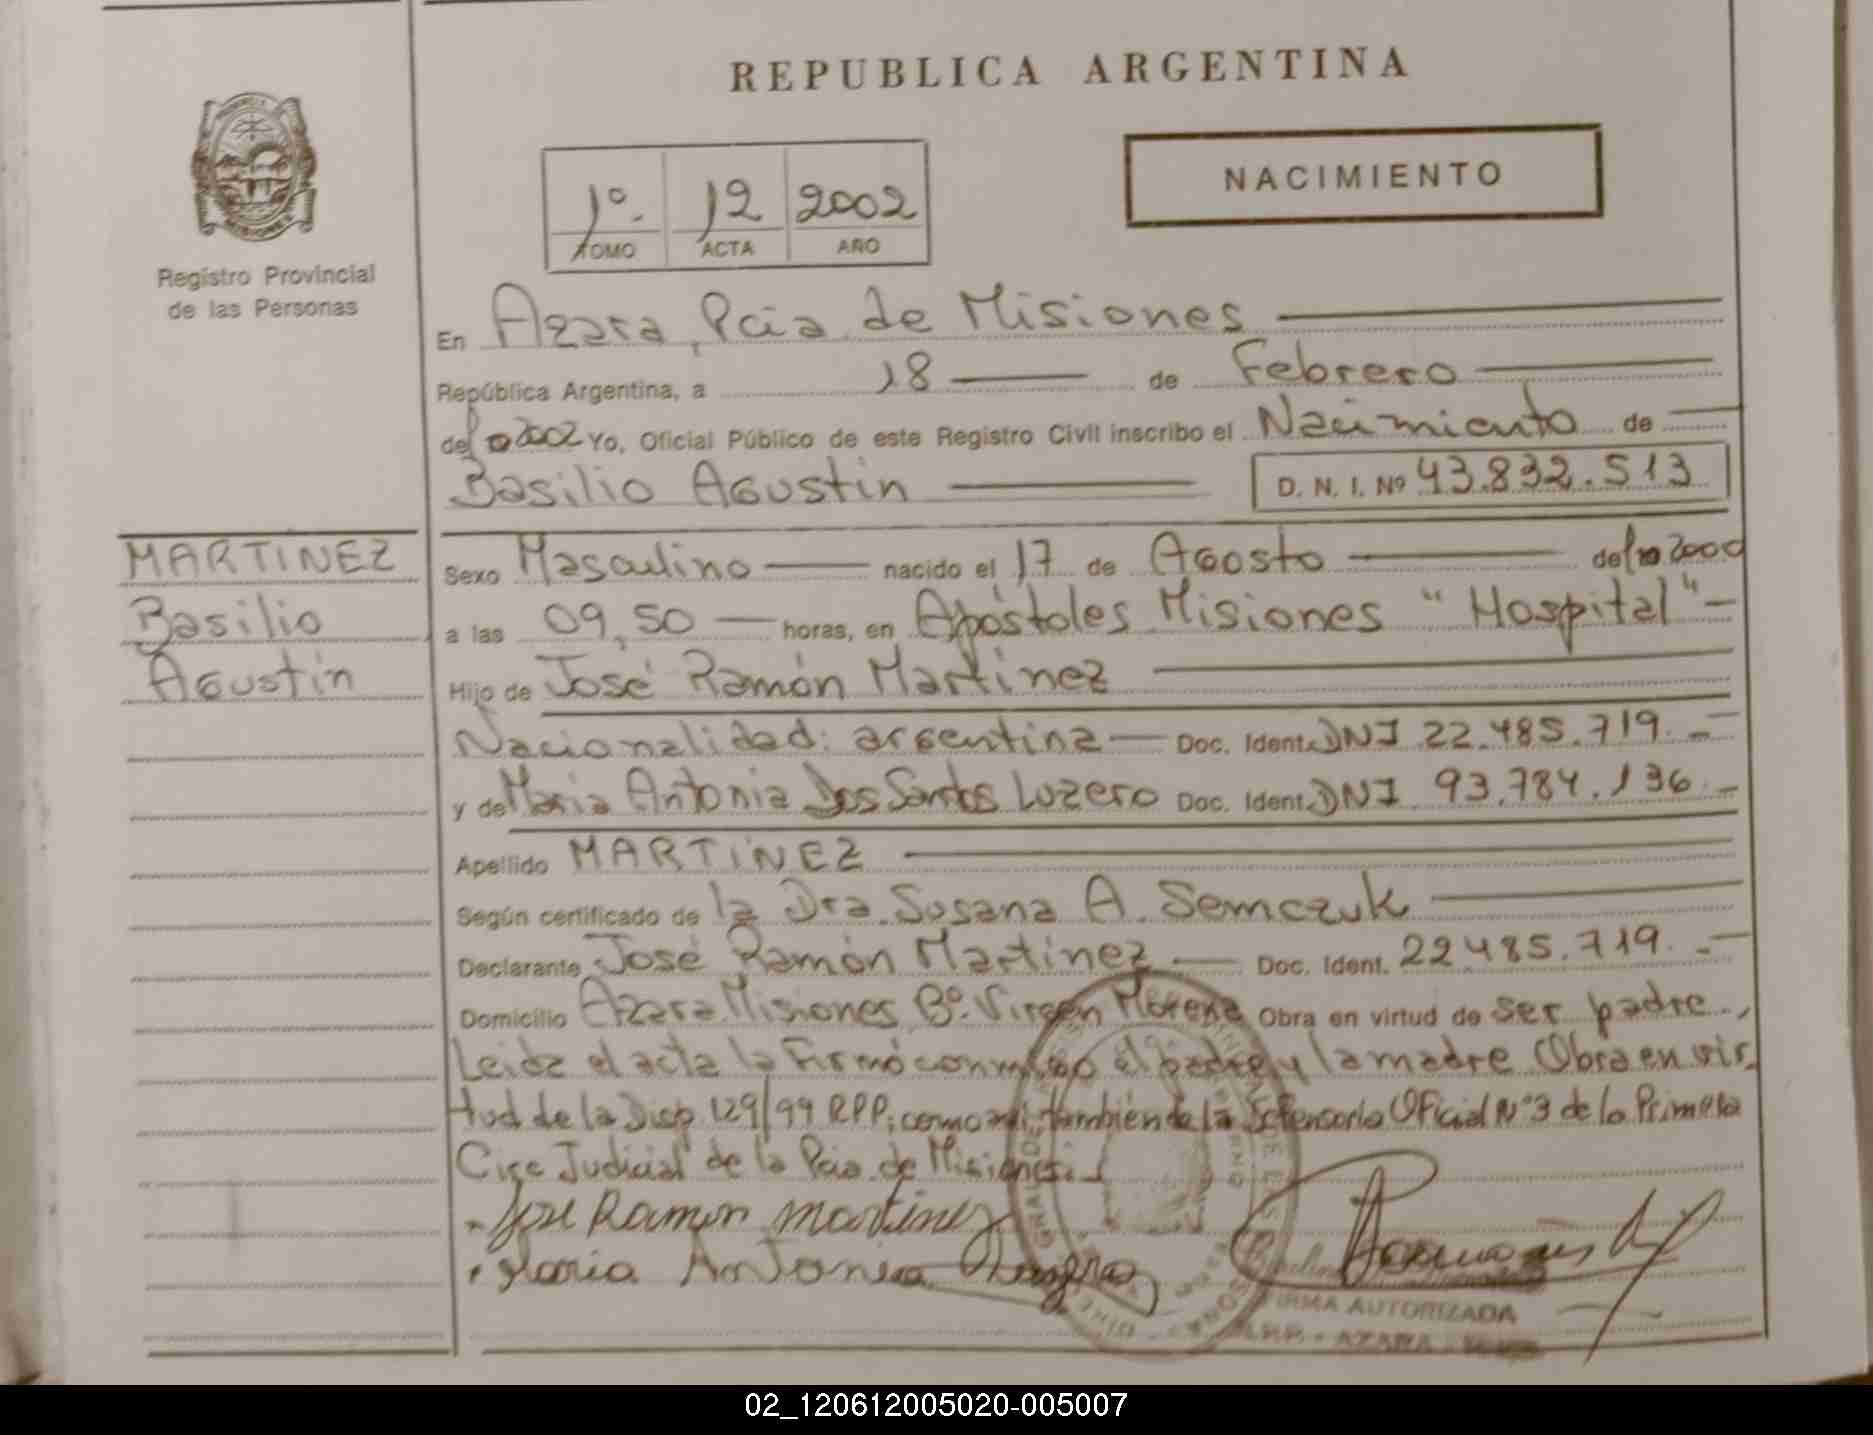 REPUBLICA ARGENTINA
NACIMIENTO
1º. 12 2002
TOMO ACTA AÑO
Registro Provincial
de las Personas
En Azara, Pcia de Misiones
República Argentina, a 18 de Febrero
del 2002 Yo, Oficial Público de este Registro Civil inscribo el Nacimiento de
Basilio Agustin D. N. I. Nº 43.832.513
MARTINEZ
Basilio
Agustin
Sexo Masculino nacido el 17 de Agosto del 2000
a las 09,50 horas, en Apóstoles Misiones "Hospital"
Hijo de José Ramón Martinez
Nacionalidad: argentina Doc. Ident. DNI 22.485.719.
y de Maria Antonia Dos Santos Luzero Doc. Ident. DNI 93.784.136
Apellido MARTINEZ
Según certificado de la Dra. Susana A. Semczuk
Declarante José Ramón Martinez Doc. Ident. 22485.719.
Domicilio Azara Misiones Bº. Virgen Morena Obra en virtud de ser padre,
Leida el acta la firmó conmigo el padre y la madre Obra en vir
tud de la Disp. 129/99 RPP; como así también de la Defensoria Oficial Nº 3 de la Primera
Circ Judicial de la Pcia. de Misiones.
José Ramon Martinez
Maria Antonia
FIRMA AUTORIZADA
AZARA
02_120612005020-005007